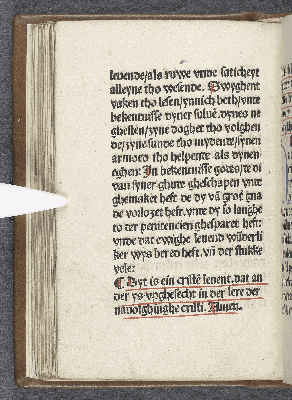 leuende/als ruwe vnde satichey t
alleyne tho wesende. Dwyghent
vaken tho lesen/ynnich beth/vnte
bekentnisse dyner sulue. dynes na
ghesten/syne doghet tho volghen
de/syne sunde tho mydente/synen
armoed tho helpente als dynen
eghen: In bekentnisse godes/te di
van syner ghute gheschapen vnte
ghemaket heft. de dy vā groē gna
de vorlozet heft. vnte dy so langhe
to der penitencien ghesparet heft:
vnde dat ewighe leuend wūderli
ker wys bered heft. vn̄ der stukke
vele:
¶ Dyt is ein cristē leuent. dat an
der ys vpghesecht in der lere der
nauolghinghe cristi. Amen.